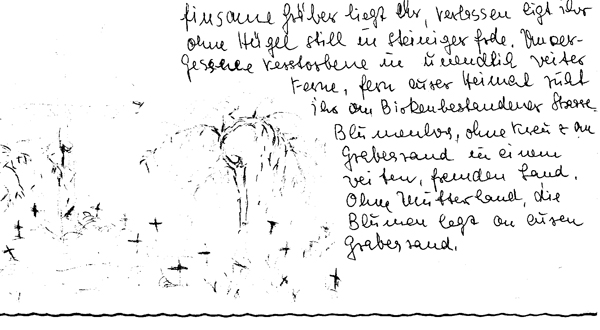 Einsame Gräber liegt ihr, verlassen ligt ihr
ohne Hügel still in steiniger Erde. Unver-
gessene verstorbene in unendlich veiter
Ferne, fern eurer Heimat ruht
ihr am Birkenbestandener Strasse.
Blumenlos, ohne Kreuz am
Grabesrand in einem
veiten, fremden Land.
Ohne Mutterhand, die
Blumen legt an euren
Grabesrand.